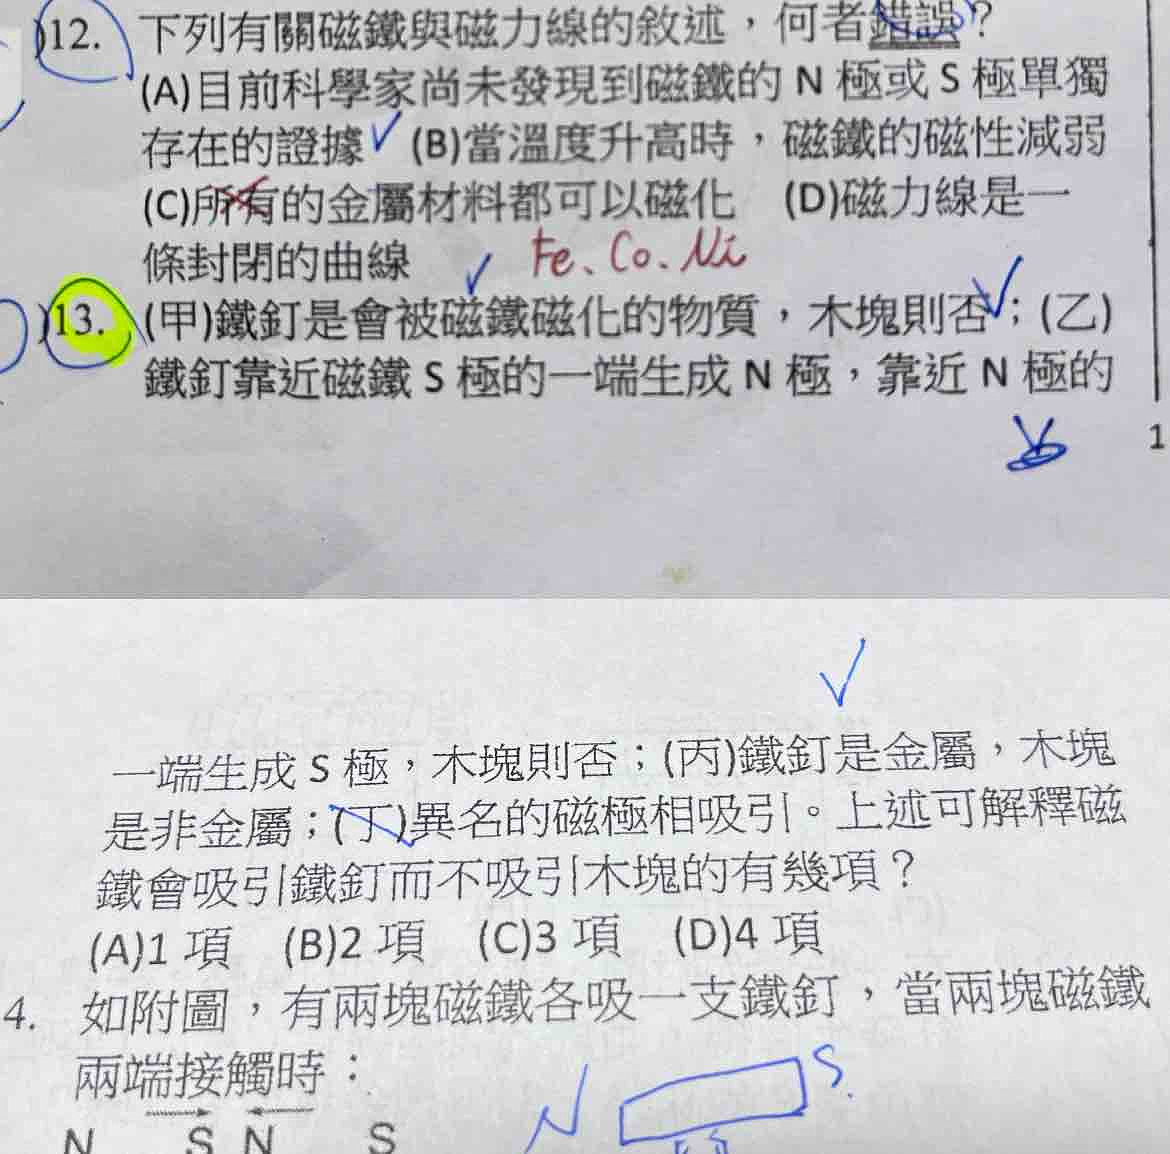 )12. 下列有關磁鐵與磁力線的敘述，何者錯誤？
(A)目前科學家尚未發現到磁鐵的 N 極或 S 極單獨
存在的證據 (B)當溫度升高時，磁鐵的磁性減弱
(C)所有的金屬材料都可以磁化 (D)磁力線是一
條封閉的曲線
Fe、Co、Ni
)13. (甲)鐵釘是會被磁鐵磁化的物質，木塊則否；(乙)
鐵釘靠近磁鐵 S 極的一端生成 N 極，靠近 N 極的
1
一端生成 S 極，木塊則否；(丙)鐵釘是金屬，木塊
是非金屬；(丁)異名的磁極相吸引。上述可解釋磁
鐵會吸引鐵釘而不吸引木塊的有幾項？
(A)1 項 (B)2 項 (C)3 項 (D)4 項
4. 如附圖，有兩塊磁鐵各吸一支鐵釘，當兩塊磁鐵
兩端接觸時：
N S N S
N S